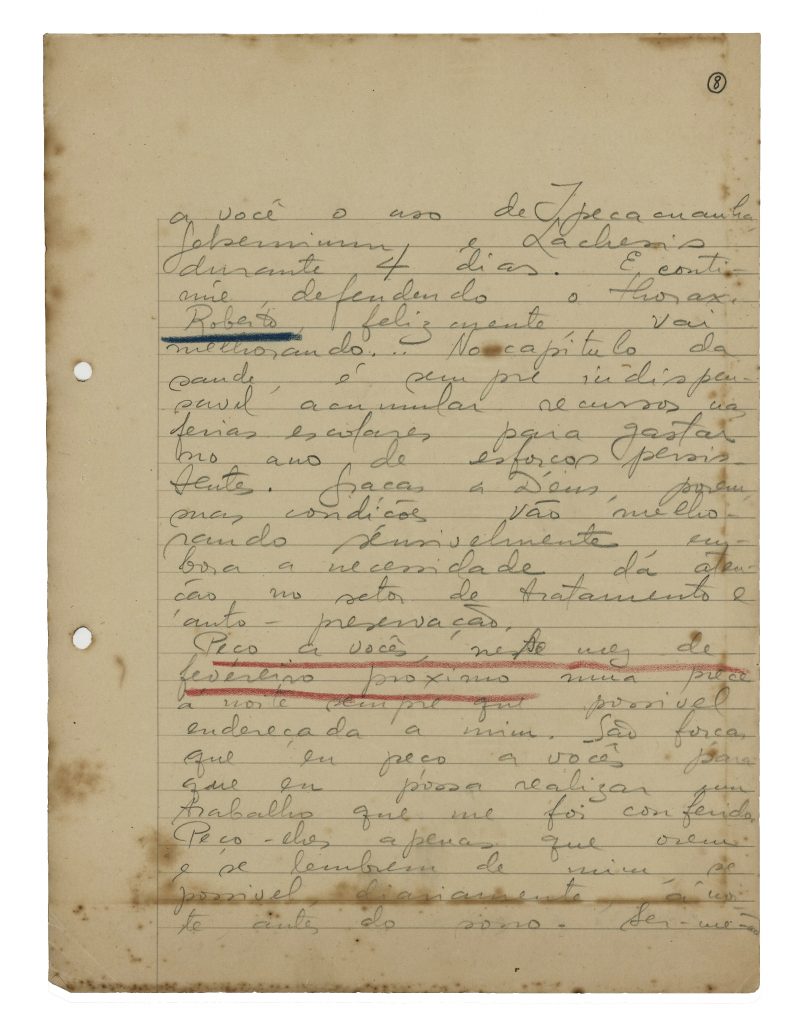 8
a você o uso de Ipecacuanha
Gelsemium e Lachesis
durante 4 dias. E conti-
núe, defendendo o thorax.
Roberto, felizmente vai
melhorando... No capítulo da
saude, é sempre indispen-
savel acumular recursos nas
ferias escolares para gastar
no ano de esforços persis-
tentes. Graças a Deus, porem,
suas condições vão melho-
rando sensivelmente em-
bora a necessidade dá aten-
ção, no setor de tratamento e
auto-preservação.
Peço a vocês, neste mez de
fevereiro proximo uma prece
á noite sempre que possivel
endereçada a mim. São forças
que eu peço a vocês para
que eu possa realizar um
trabalho que me foi conferido.
Peço-lhes apenas que orem
e se lembrem de mim se
possivel, diariamente, á noi-
te antes do sono. Ser-me-ão